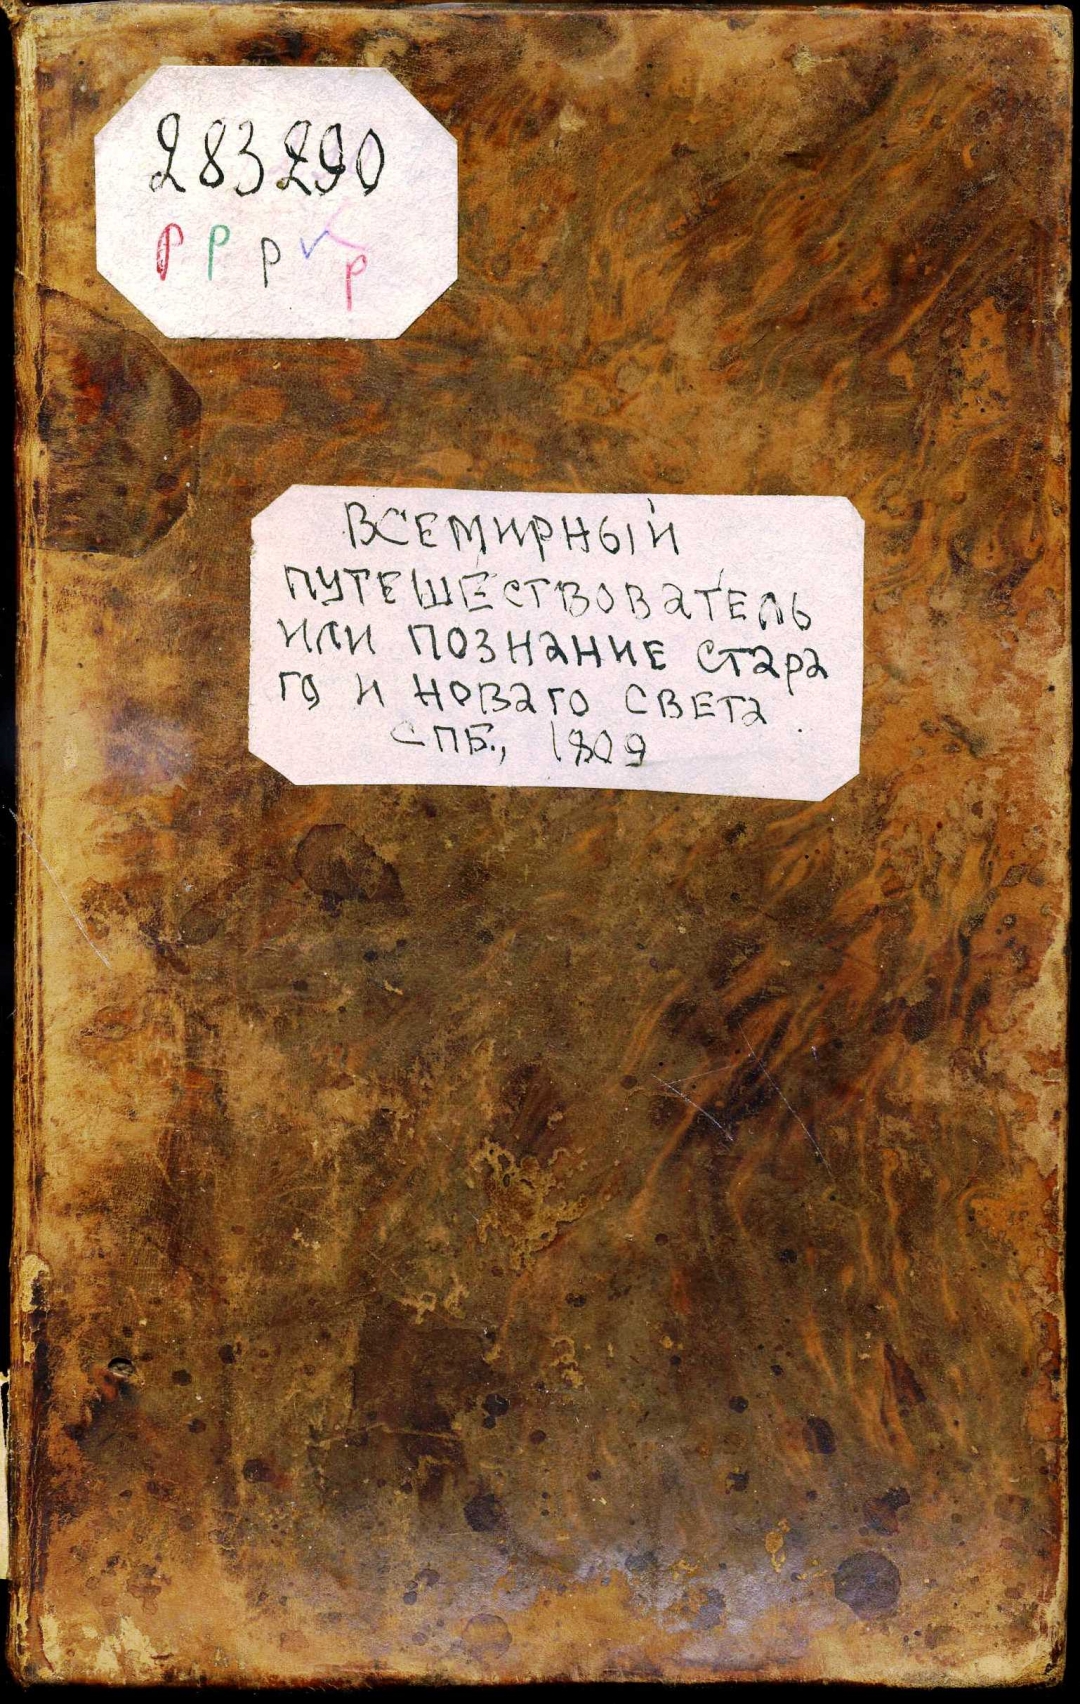 283290
р р р р
ВСЕМИРНЫЙ
ПУТЕШЕСТВОВАТЕЛЬ
ИЛИ ПОЗНАНИЕ СТАРА
ГО И НОВАГО СВЕТА
СПБ., 1809